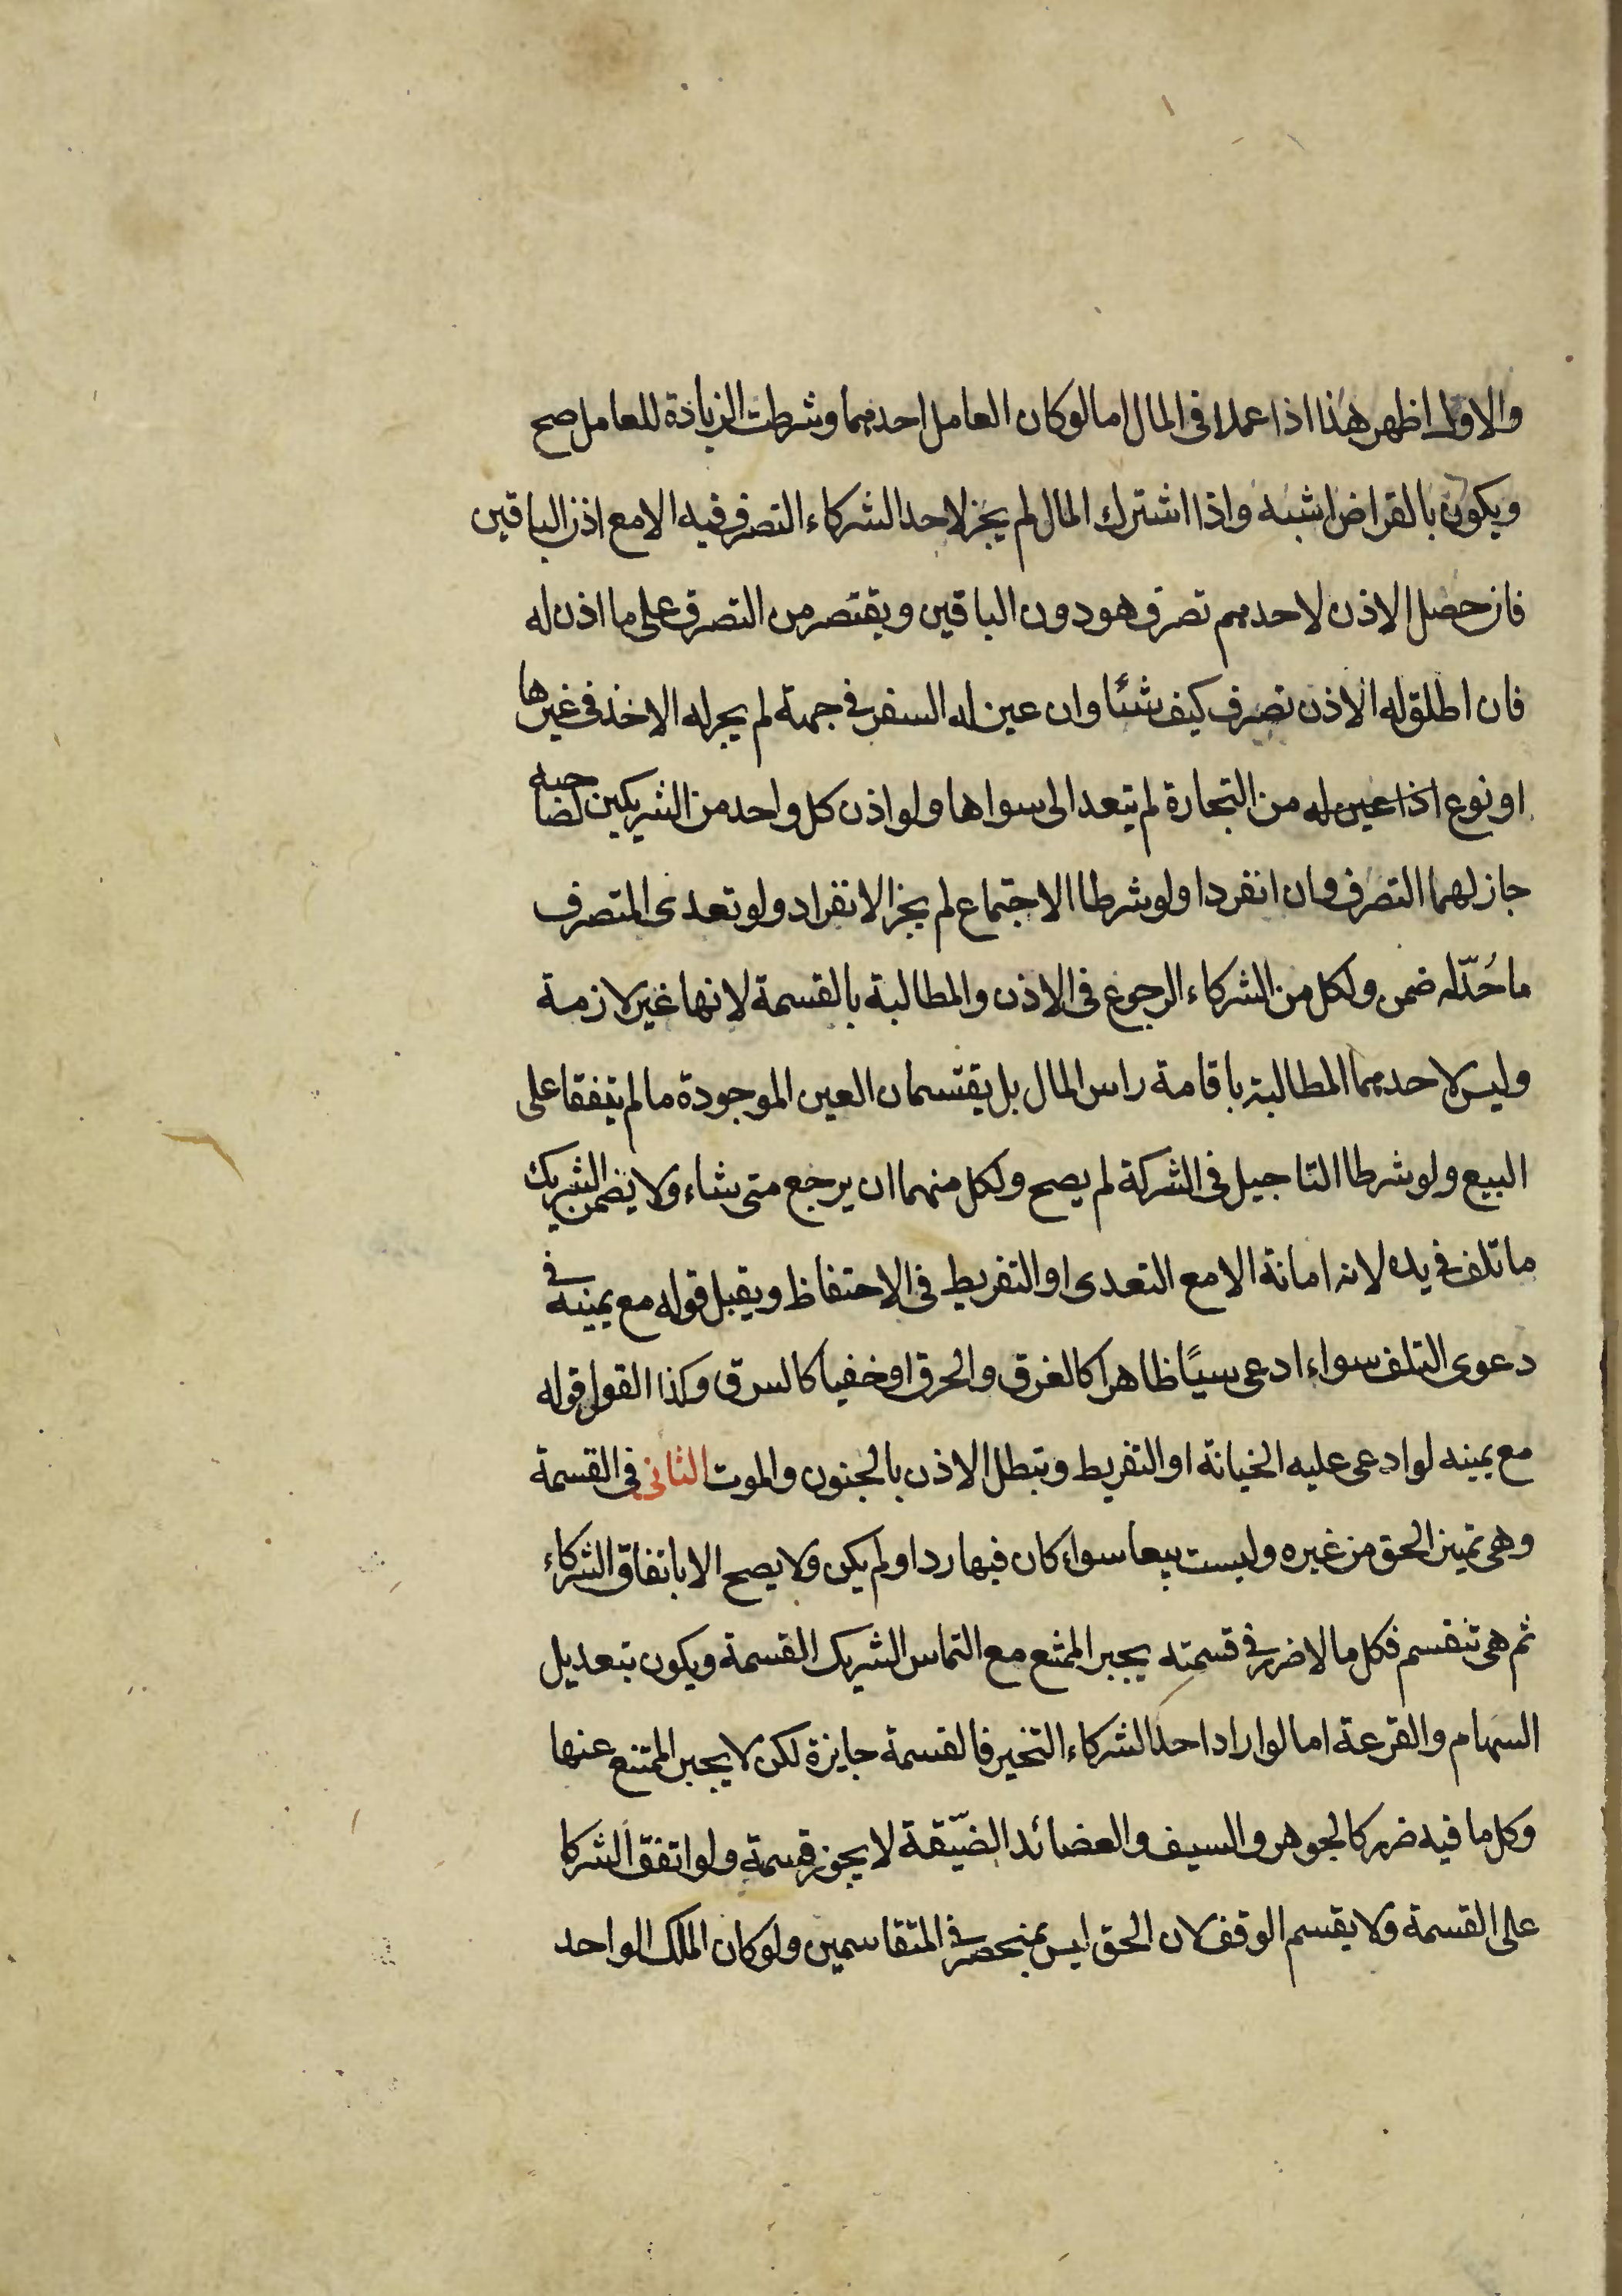 والاول اظهر هذا اذا عملا فى المال اما لو كان العامل احدهما وشرطت الزيادة للعامل صح
ويكون بالقراض اشبه واذا اشترك المال لم يجز لاحد الشركاء التصرف فيه الا مع اذن الباقين
فان حصل الاذن لاحدهم تصرف هو دون الباقين ويقتصر من التصرف على ما اذن له
فان اطلق له الاذن تصرف كيف شئا وان عين له السفر فى جهة لم يجز له الاخذ فى غيرها
او نوع اذا عين له من التجارة لم يتعد الى سواها ولو اذن كل واحد من الشريكين لصاحبه
جاز لهما التصرف وان انفردا ولو شرطا الاجتماع لم يجز الانفراد ولو تعدى المتصرف
ما حُدّ له ضمن ولكل من الشركاء الرجوع فى الاذن والمطالبة بالقسمة لانها غير لازمة
وليس لاحدهما المطالبة باقامة راس المال بل يقتسمان العين الموجودة ما لم يتفقا على
البيع ولو شرطا التاجيل فى الشركة لم يصح ولكل منهما ان يرجع متى شاء ولا يضمن الشريك
ما تلف فى يده لانه امانة الا مع التعدى او التفريط فى الاحتفاظ ويقبل قوله مع يمينه فى
دعوى التلف سواء ادعى سببًا ظاهرا كالغرق والحرق او خفيا كالسرق وكذا القول قوله
مع يمينه لو ادعى عليه الخيانة او التفريط وتبطل الاذن بالجنون والموت الثانى فى القسمة
وهى تميز الحق من غيره وليست بيعا سواء كان فيها رد او لم يكن ولا يصح الا باتفاق الشركاء
ثم هى تنقسم فكل ما لا ضرر فى قسمته يجبر الممتنع مع التماس الشريك القسمة ويكون بتعديل
السهام والقرعة اما لو اراد احد الشركاء التخير فالقسمة جايزة لكن لا يجبر الممتنع عنها
وكل ما فيه ضرر كالجوهر والسيف والعضائد الضيّقة لا يجوز قسمة ولو اتفق الشركا
على القسمة ولا يقسم الوقف لان الحق ليس بمنحصر فى المتقاسمين ولو كان الملك الواحد